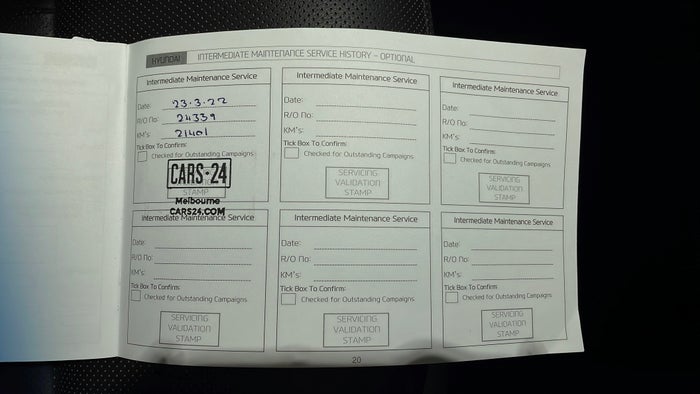 HYUNDAI INTERMEDIATE MAINTENANCE SERVICE HISTORY – OPTIONAL
Intermediate Maintenance Service
Date: 23.3.22
R/O No: 24339
KM's: 21401
Tick Box To Confirm:
Checked for Outstanding Campaigns
CARS·24
STAMP
Melbourne
CARS24.COM
Intermediate Maintenance Service
Date:
R/O No:
KM's:
Tick Box To Confirm:
Checked for Outstanding Campaigns
SERVICING
VALIDATION
STAMP
Intermediate Maintenance Service
Date:
R/O No:
KM's:
Tick Box To Confirm:
Checked for Outstanding Campaigns
SERVICING
VALIDATION
STAMP
Intermediate Maintenance Service
Date:
R/O No:
KM's:
Tick Box To Confirm:
Checked for Outstanding Campaigns
SERVICING
VALIDATION
STAMP
Intermediate Maintenance Service
Date:
R/O No:
KM's:
Tick Box To Confirm:
Checked for Outstanding Campaigns
SERVICING
VALIDATION
STAMP
Intermediate Maintenance Service
Date:
R/O No:
KM's:
Tick Box To Confirm:
Checked for Outstanding Campaigns
SERVICING
VALIDATION
STAMP
20